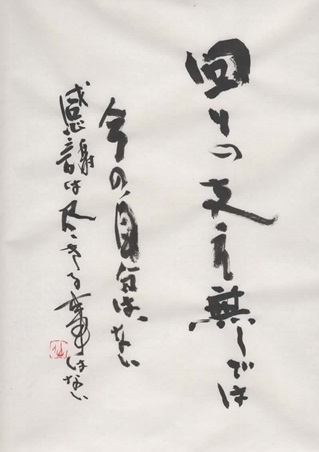 回りの支え無しでは
今の自分はない
感謝は尽きる事はない